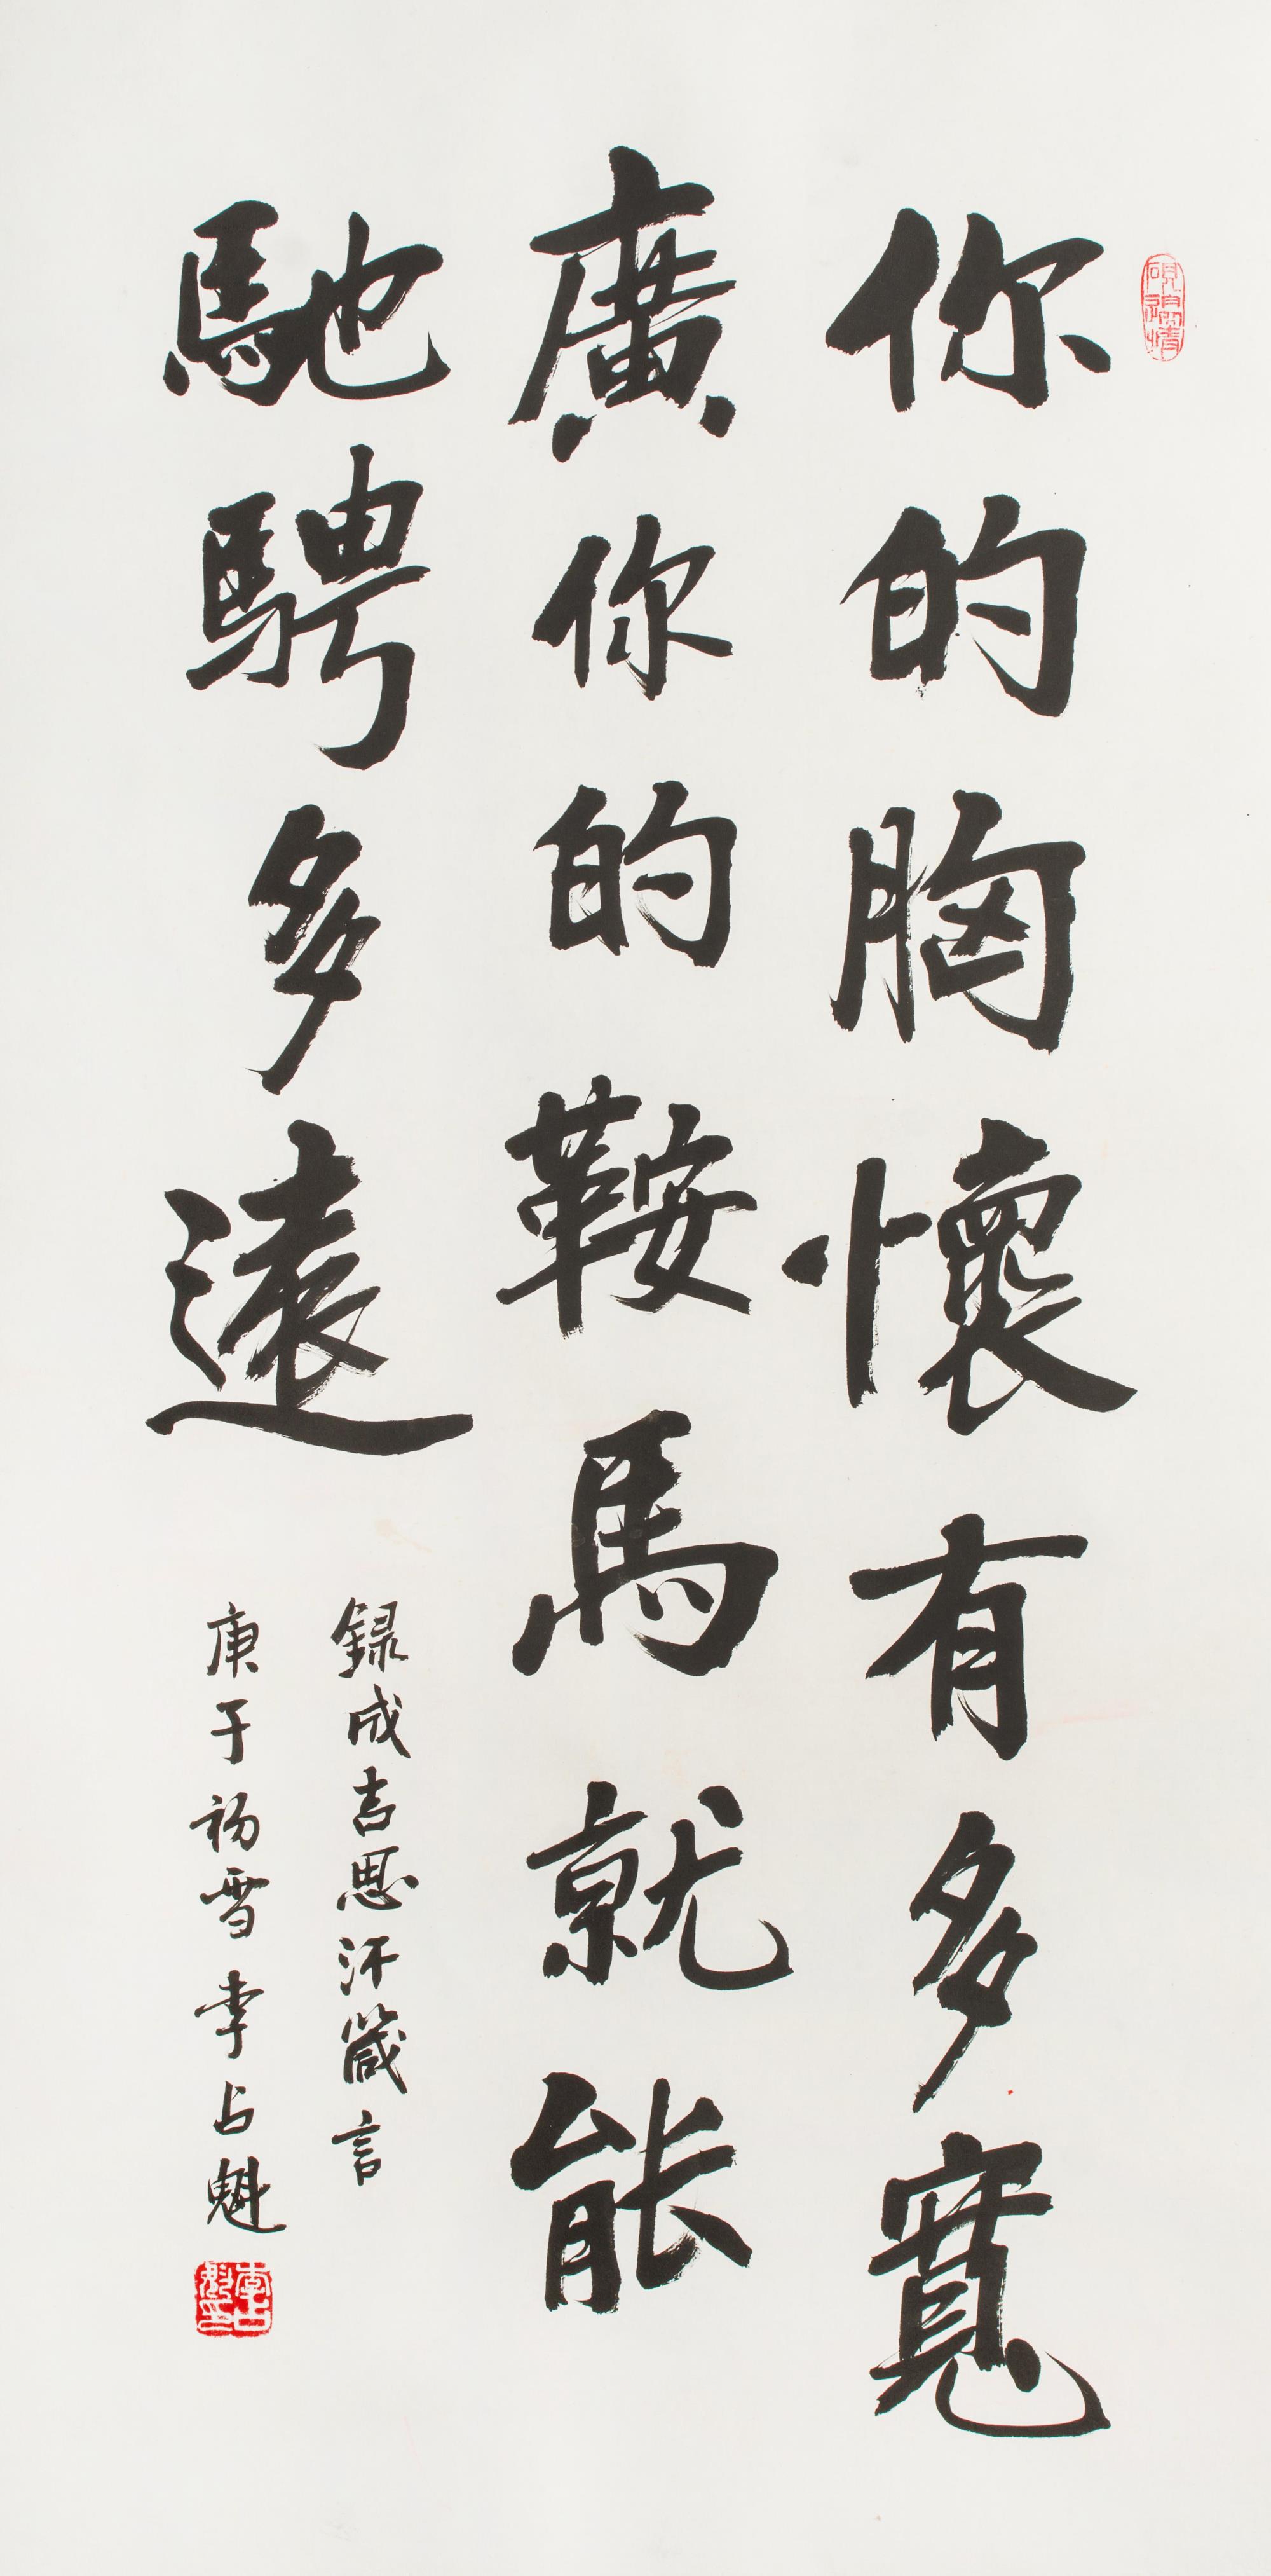 你的胸懷有多寬
廣你的鞍馬就能
馳騁多遠
録成吉思汗箴言
庚子初雪李占魁